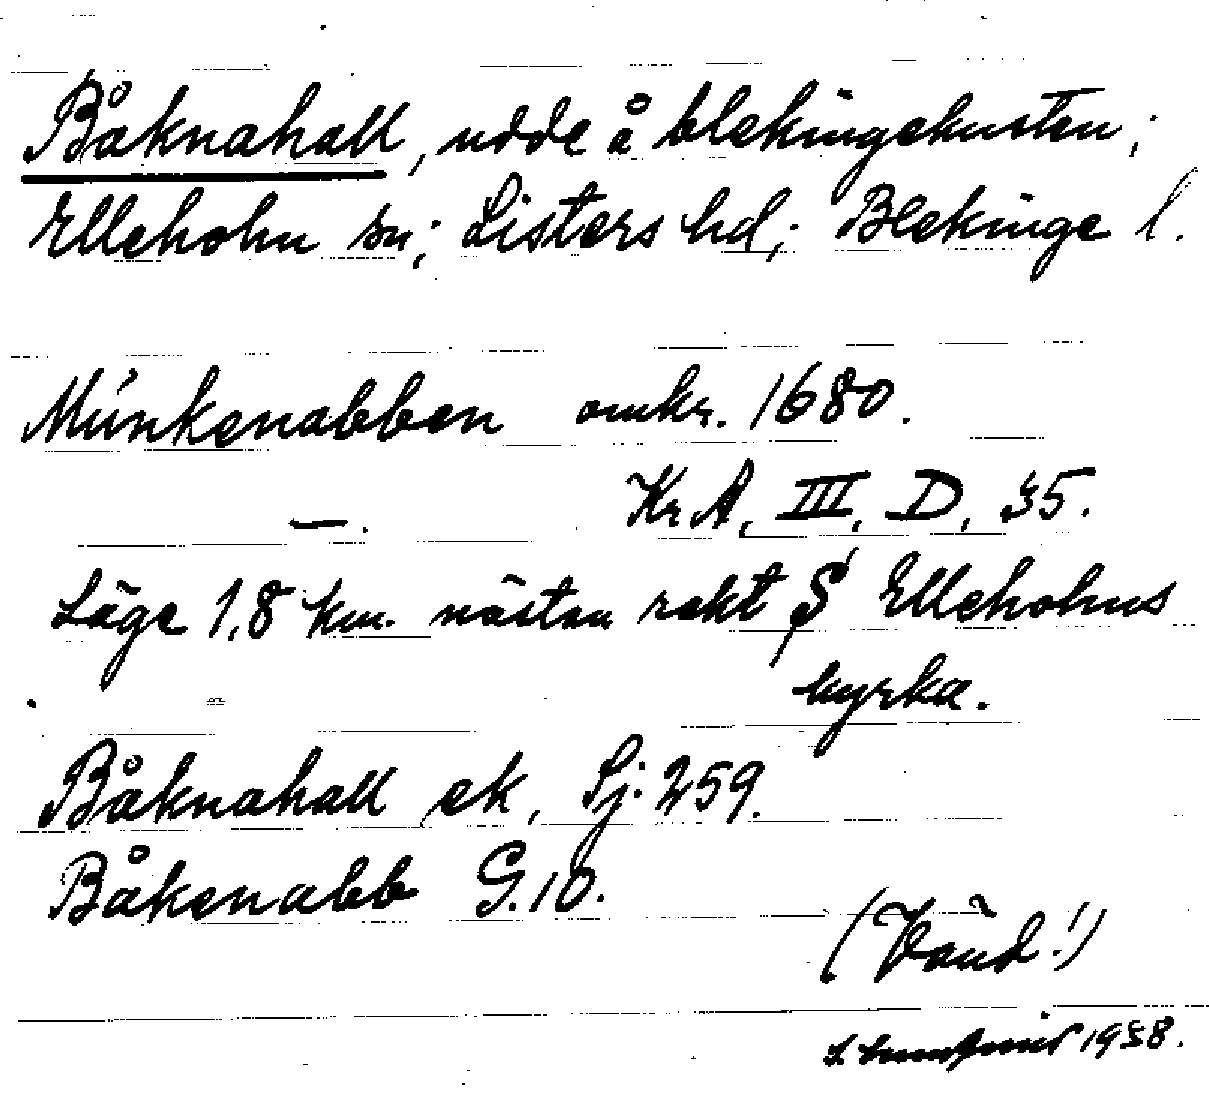 Båknahall, udde å blekingekusten;
Elleholm sn; Listers hd; Blekinge l.
Munkenabben omkr. 1680.
KrA, III, D, 35.
—.
Läge 1,8 km. nästan rakt S Elleholms
kyrka.
Båknahall ek, Sj. 259.
Båkenabb G. 10.
(Vänd!)
1938.